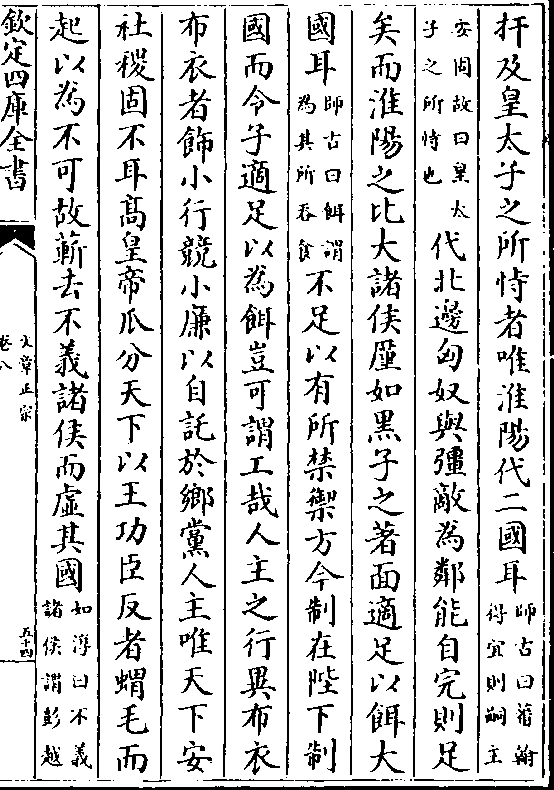 扞及皇太子之所恃者唯淮陽代二國耳師古曰蕃翰得宜則嗣主
安固故曰皇太子之所恃也代北邊匈奴與彊敵為鄰能自完則足
矣而淮陽之比大諸侯厪如黑子之著面適足以餌大
國耳師古曰餌謂為其所吞食不足以有所禁禦方今制在陛下制
國而令子適足以為餌豈可謂工哉人主之行異布衣
布衣者飾小行競小廉以自託於鄉黨人主唯天下安
社稷固不耳髙皇帝瓜分天下以王功臣反者蝟毛而
起以為不可故蘄去不義諸侯而虛其國如淳曰不義諸侯謂彭越
欽定四庫全書
文章正宗
卷八
五十四